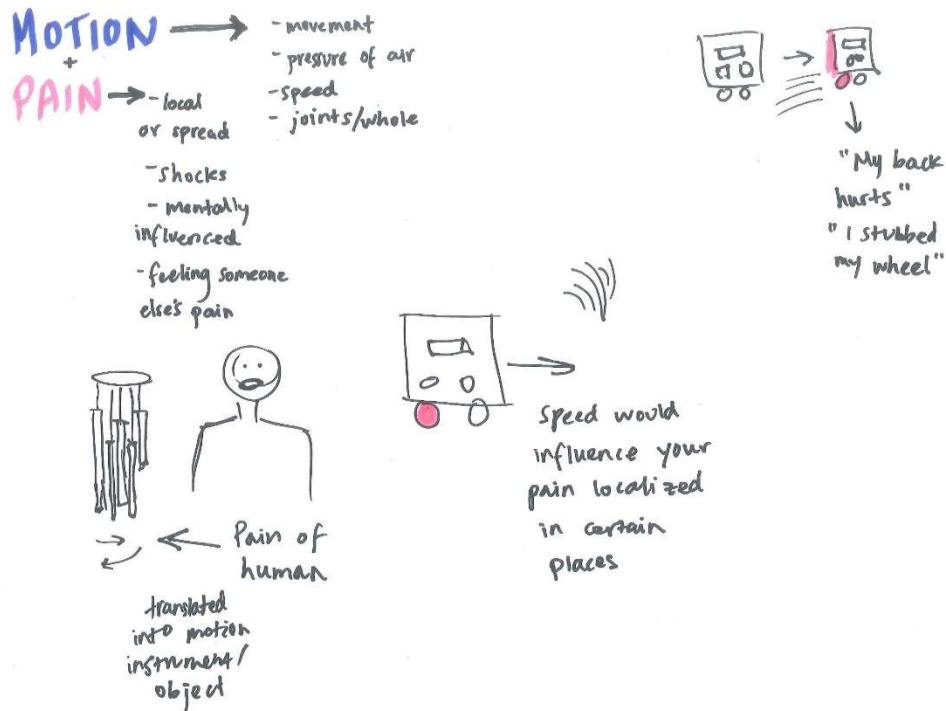 MOTION
+
PAIN
- movement
- pressure of air
- speed
- joints/whole
- local
or spread
- shocks
- mentally
influenced
- feeling someone
else's pain
"My back
hurts"
"I stubbed
my wheel"
Speed would
influence your
pain localized
in certain
places
Pain of
human
translated
into motion
instrument/
object